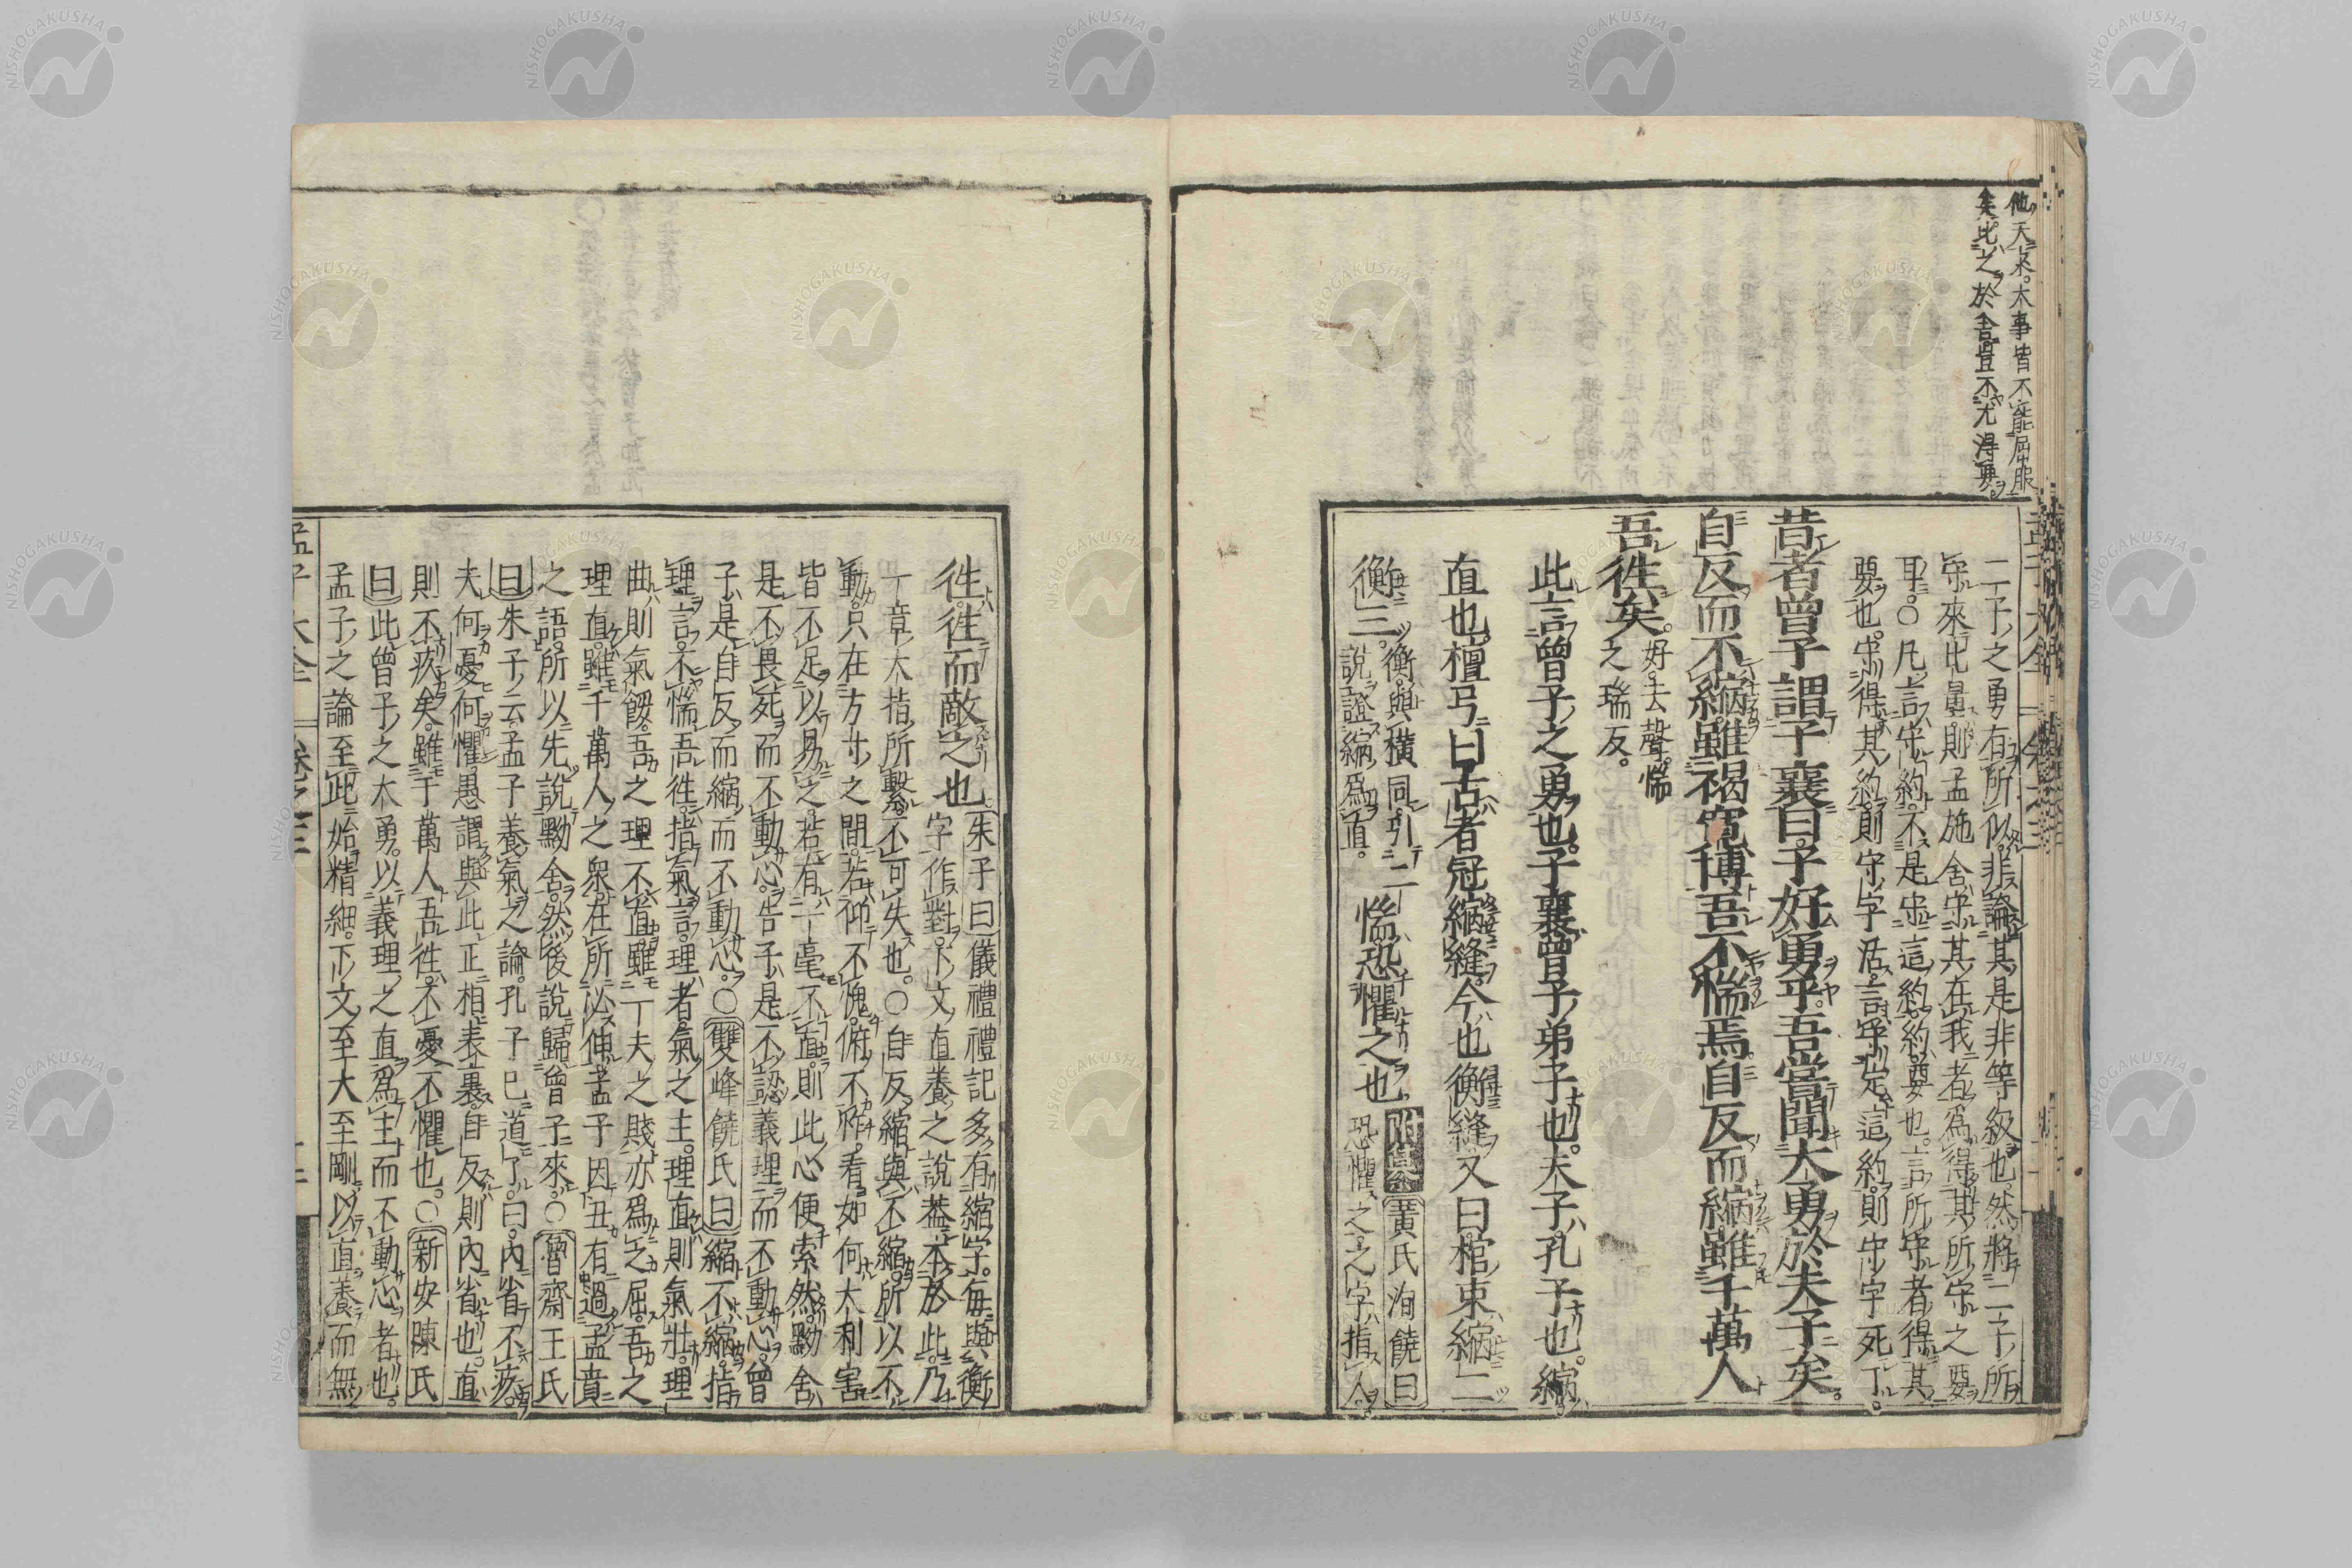 他天來大事皆不能屈服
矣比之於舍豈不尤得要
二子之勇有所似非論其是非等級也然將二子所
守來比量則孟施舍守其在我者爲得其所守之要
耳○凡言守約不是守這約約要也言所守者得其
要也守得其約則守字活言守定這約則守字死了
昔者曾子謂子襄曰子好勇乎吾嘗聞大勇於夫子矣
自反而不縮雖褐寬博吾不惴焉自反而縮雖千萬人
吾往矣 好去聲惴
之瑞反
此言曾子之勇也子襄曾子弟子也夫子孔子也縮
直也檀弓曰古者冠縮縫今也衡縫又曰棺束縮二
衡三 衡與橫同引二
說證縮爲直
惴恐懼之也 附纂 黃氏洵饒曰
恐懼之之字指人
往往而敵之也 朱子曰儀禮禮記多有縮字每與衡
字作對下文直養之說蓋本於此乃
一章大指所繫不可失也○自反縮與不縮所以不
動只在方寸之間若仰不愧俯不怍看如何大利害
皆不足以易之若有一毫不直則此心便索然黝舍
是不畏死而不動心告子是不認義理而不動心曾
子是自反而縮而不動心○雙峰饒氏曰縮不縮指
理言不惴吾往指氣言理者氣之主理直則氣壯理
曲則氣餒吾之理不直雖一夫之賤亦爲之屈吾之
理直雖千萬人之衆在所必伸孟子因丑有過孟賁
之語所以先說黝舍然後說歸曾子來○魯齋王氏
曰朱子云孟子養氣之論孔子已道了曰內省不疚
夫何憂何懼愚謂與此正相表裏自反則內省也直
則不疚矣雖千萬人吾往不憂不懼也○新安陳氏
曰此曾子之大勇以義理之直爲主而不動心者也
孟子之論至此始精細下文至大至剛以直養而無
孟子大全 卷之三